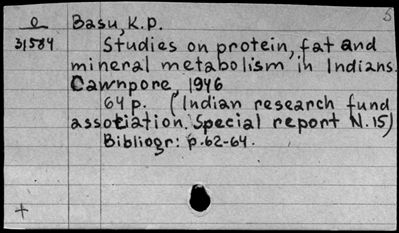 e Basu, K.p. 5
31584 Studies on protein, fat and
mineral metabolism in Indians.
Cawnpore, 1946
64 p. (Indian research fund
association. Special report N.15)
Bibliogr: p.62-64.
+